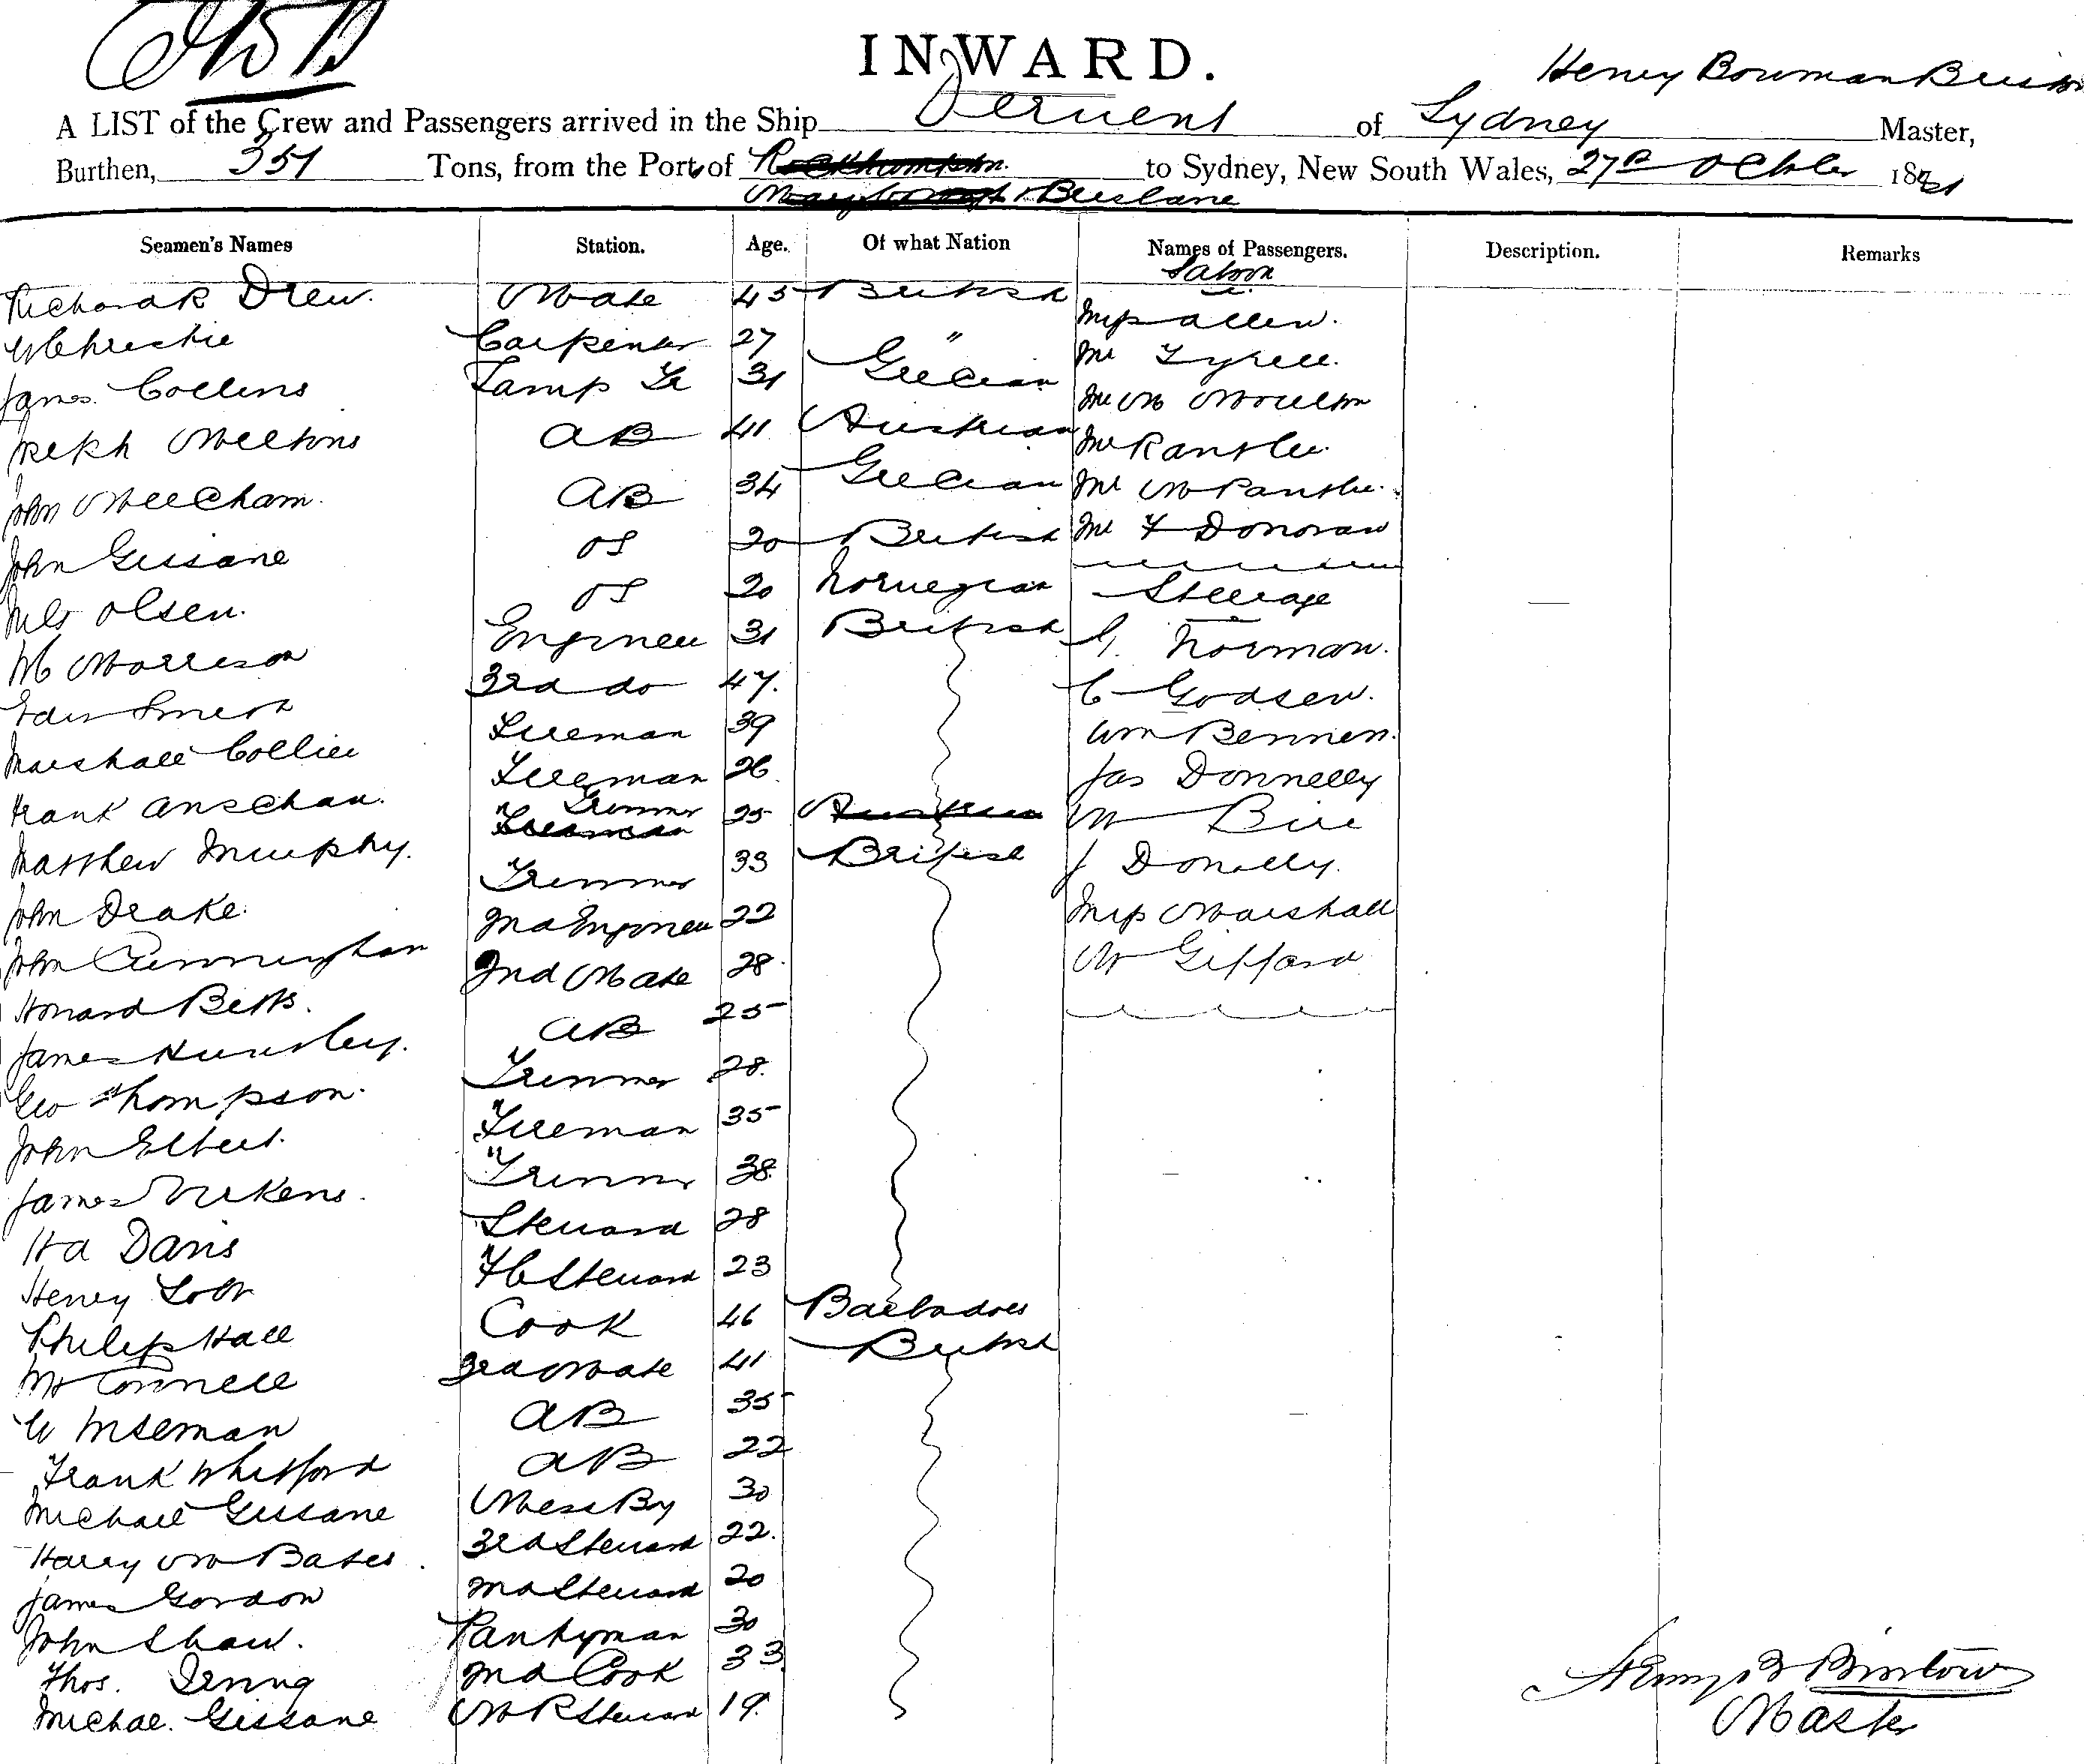 INWARD.
Henry Bowman
A LIST of the Crew and Passengers arrived in the Ship Derwent of Sydney Master,
Burthen, 351 Tons, from the Port of Rockhampton to Sydney, New South Wales, 27th October 18
Maryborough & Brisbane
Seamen's Names Station. Age. Of what Nation Names of Passengers. Description. Remarks
Saloon
Richard Drew. Mate 45 British
Miss Allen.
W Christie Carpenter 27 "
Mr Tyrell.
James Collins Lamp Tr 31 Grecian
Mr M Moulton
AB 41 Austrian
Mr
John Meecham. AB 34 Grecian
Mr W
John Gissane OS 20 British
Mr F Donovan
Nils Olsen. OS 20 Norwegian
Steerage
W Morrison Engineer 31 British
Norman.
Smith 3rd do 47.
C Godsen.
Marshall Collier Fireman 39
Wm
Frank Fireman 26
Jas Donnelly
Matthew Murphy. Trimmer Fireman 25 Austrian
W
John Drake. Trimmer 33 British
J Donelly.
John Cunningham 2nd Engineer 22
Miss Marshall
Howard Betts. 2nd Mate 28
W Gifford
James Hunsley. AB 25
Geo Thompson. Trimmer 28.
John Elbert. Fireman 35
James Trimmer 38.
Davis Steward 28
Henry Lott FC Steward 23
Philip Hall Cook 46 Barbadoes
Connell 3rd Mate 41 British
Wiseman AB 35
Frank Whitford AB 22
Michael Gissane Mess By 30
Harry W Bates. 3rd Steward 22.
James Gordon 2nd Steward 20
John Shaw. Pantryman 30
Thos. 2nd Cook 33
Michael Gissane M R Steward 19.
Henry B
Master